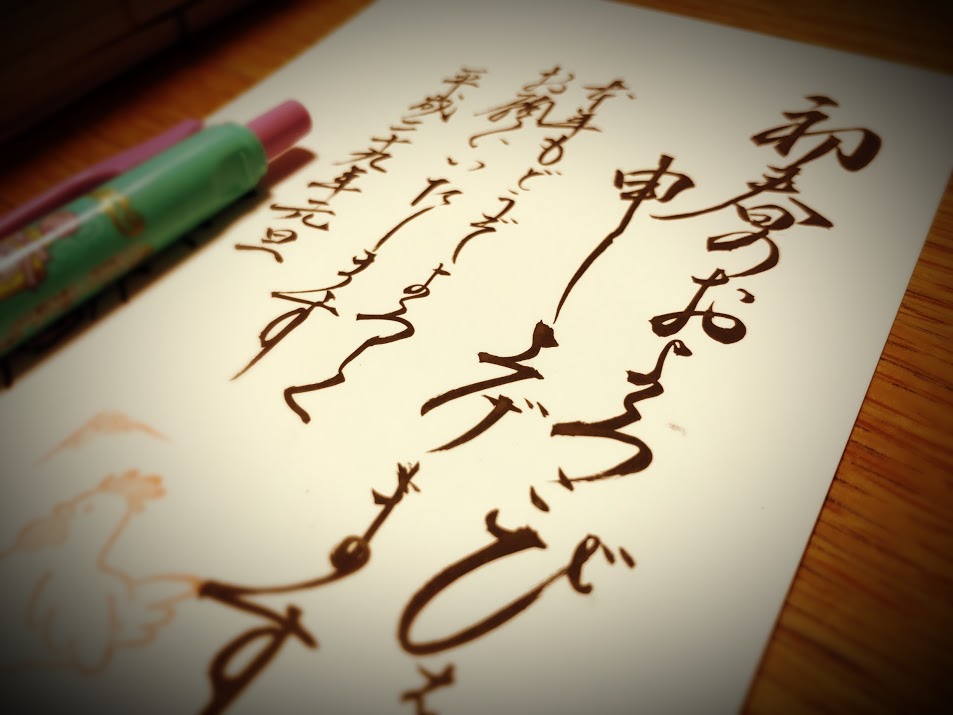 初春のおよろこびを
申し上げます
本年もどうぞよろしく
お願いいたします
平成二十九年元旦